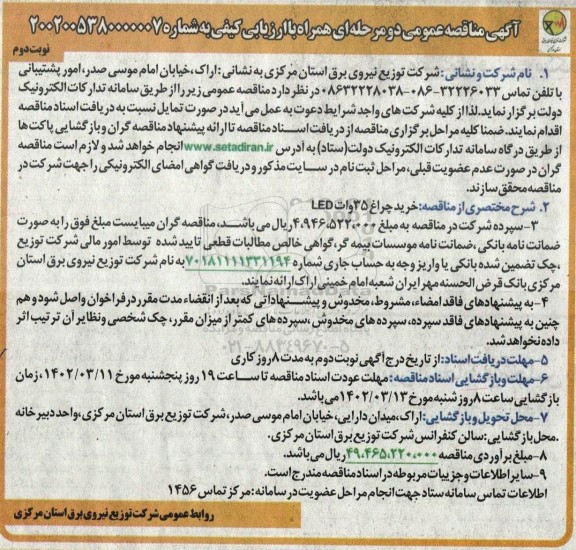 آگهی مناقصه عمومی دو مرحله ای همراه با ارزیابی کیفی به شماره ۲۰۰۲۰۰۵۳۸۰۰۰۰۰۰۷
نوبت دوم
۱. نام شرکت و نشانی: شرکت توزیع نیروی برق استان مرکزی به نشانی: اراک، خیابان امام موسی صدر، امور پشتیبانی
با تلفن تماس ۳۲۲۳۶۰۳۳-۰۸۶-۰۸۶۳۲۲۲۸۰۳۸ در نظر دارد مناقصه عمومی زیر را از طریق سامانه تدارکات الکترونیک
دولت برگزار نماید. لذا از کلیه شرکت های واجد شرایط دعوت به عمل می آید در صورت تمایل نسبت به دریافت اسناد مناقصه
اقدام نمایند. ضمنا کلیه مراحل برگزاری مناقصه از دریافت اسناد مناقصه تا ارائه پیشنهاد مناقصه گران و بازگشایی پاکت ها
از طریق درگاه سامانه تدارکات الکترونیک دولت (ستاد) به آدرس www.setadiran.ir انجام خواهد شد و لازم است مناقصه
گران در صورت عدم عضویت قبلی، مراحل ثبت نام در سایت مذکور و دریافت گواهی امضای الکترونیکی را جهت شرکت در
مناقصه محقق سازند.
۲. شرح مختصری از مناقصه: خرید چراغ ۳۵ وات LED
۳-سپرده شرکت در مناقصه به مبلغ ۴.۹۴۶.۵۲۲.۰۰۰ ریال می باشد، مناقصه گران میبایست مبلغ فوق را به صورت
ضمانت نامه بانکی، ضمانت نامه موسسات بیمه گر، گواهی خالص مطالبات قطعی تایید شده توسط امور مالی شرکت توزیع
، چک تضمین شده بانکی یا واریز وجه به حساب جاری شماره ۷۰۱۸۱۱۱۱۳۳۱۱۹۴ به نام شرکت توزیع نیروی برق استان
مرکزی بانک قرض الحسنه مهر ایران شعبه امام خمینی اراک ارائه نمایند.
۴- به پیشنهادهای فاقد امضاء، مشروط، مخدوش و پیشنهاداتی که بعد از انقضاء مدت مقرر در فراخوان واصل شود و هم
چنین به پیشنهادهای فاقد سپرده، سپرده های مخدوش، سپرده های کمتر از میزان مقرر، چک شخصی و نظایر آن ترتیب اثر
داده نخواهد شد.
۵-مهلت دریافت اسناد: از تاریخ درج آگهی نوبت دوم به مدت ۸ روز کاری
۶-مهلت و بازگشایی اسناد مناقصه: مهلت عودت اسناد مناقصه تا ساعت ۱۹ روز پنجشنبه مورخ ۱۴۰۲/۰۳/۱۱، زمان
بازگشایی ساعت ۸ روز شنبه مورخ ۱۴۰۲/۰۳/۱۳ می باشد.
۷-محل تحویل و بازگشایی: اراک، میدان دارایی، خیابان امام موسی صدر، شرکت توزیع برق استان مرکزی، واحد دبیرخانه
.محل بازگشایی: سالن کنفرانس شرکت توزیع برق استان مرکزی.
۸-مبلغ برآوردی مناقصه ۴۹.۴۶۵.۲۲۰.۰۰۰ ریال می باشد.
۹-سایر اطلاعات و جزییات مربوطه در اسناد مناقصه مندرج است.
اطلاعات تماس سامانه ستاد جهت انجام مراحل عضویت در سامانه: مرکز تماس ۱۴۵۶
روابط عمومی شرکت توزیع نیروی برق استان مرکزی
۰۲۱-۸۸۳۴۹۶۷۰-۵